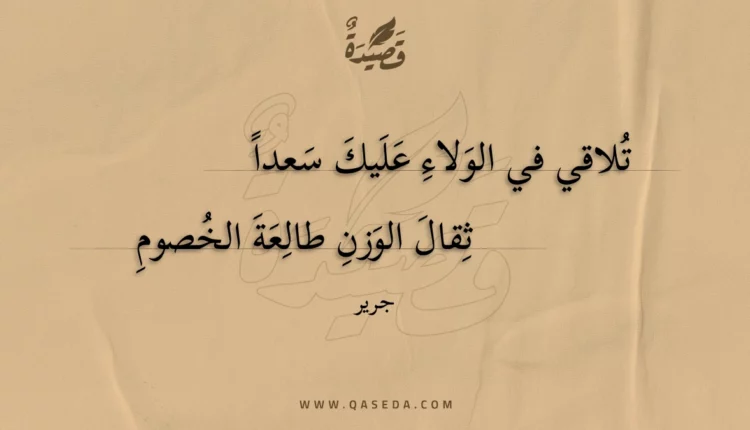 قَصِيْدَةٌ
تُلاقي في الوَلاءِ عَلَيكَ سَعداً
ثِقالَ الوَزنِ طالِعَةَ الخُصومِ
جرير
WWW.QASEDA.COM